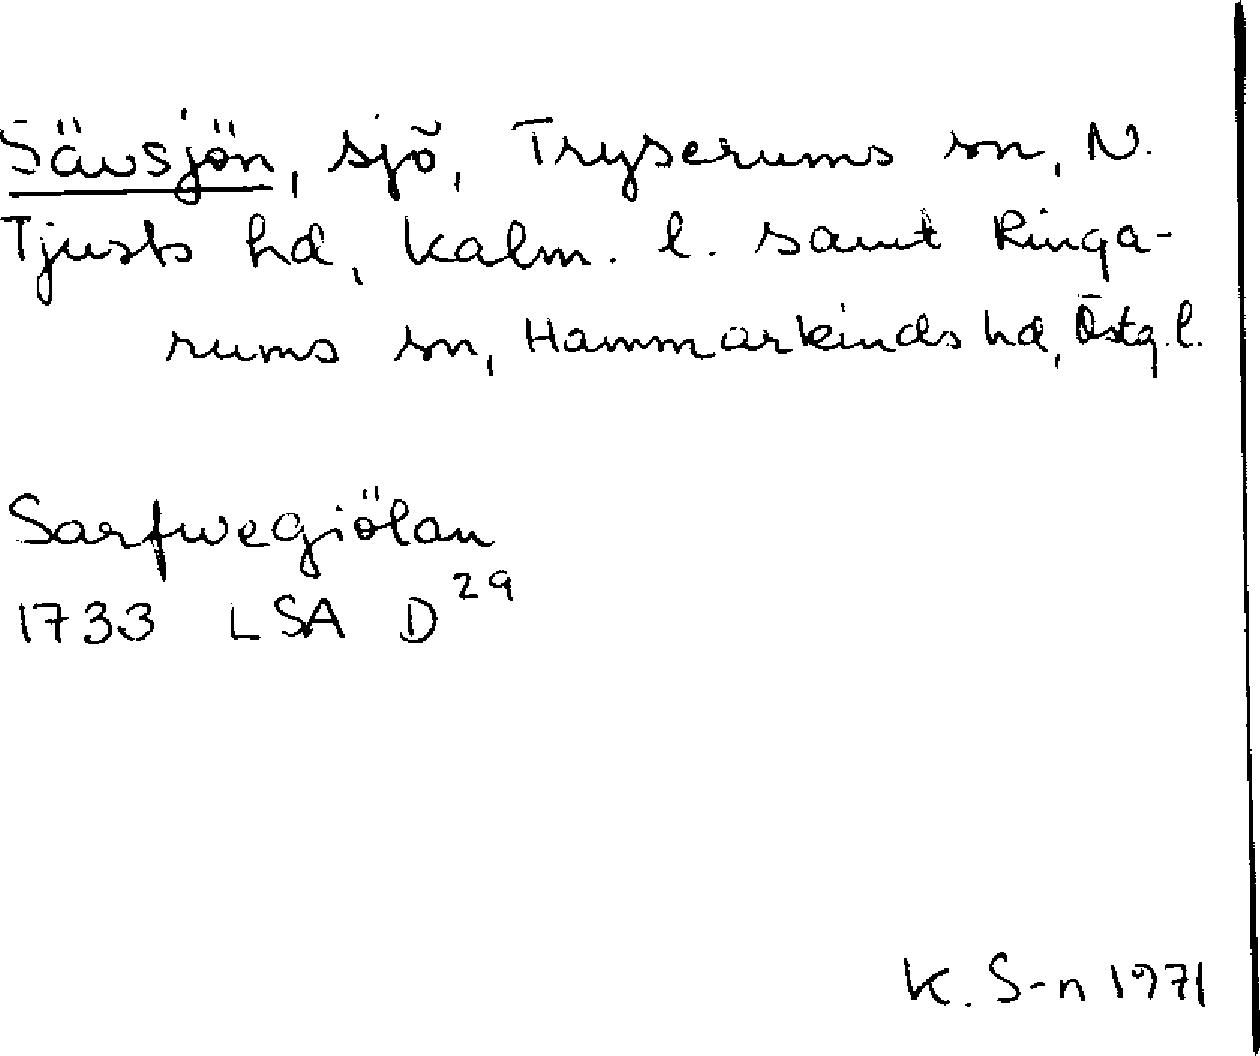 Sävsjön, sjö, Tryserums sn, N.
Tjusts hd, Kalm. l. samt Ringa-
rums sn, Hammarkinds hd, Östg. l.
Sarfwegiölan
1733 LSA D 29
K. S-n 1971